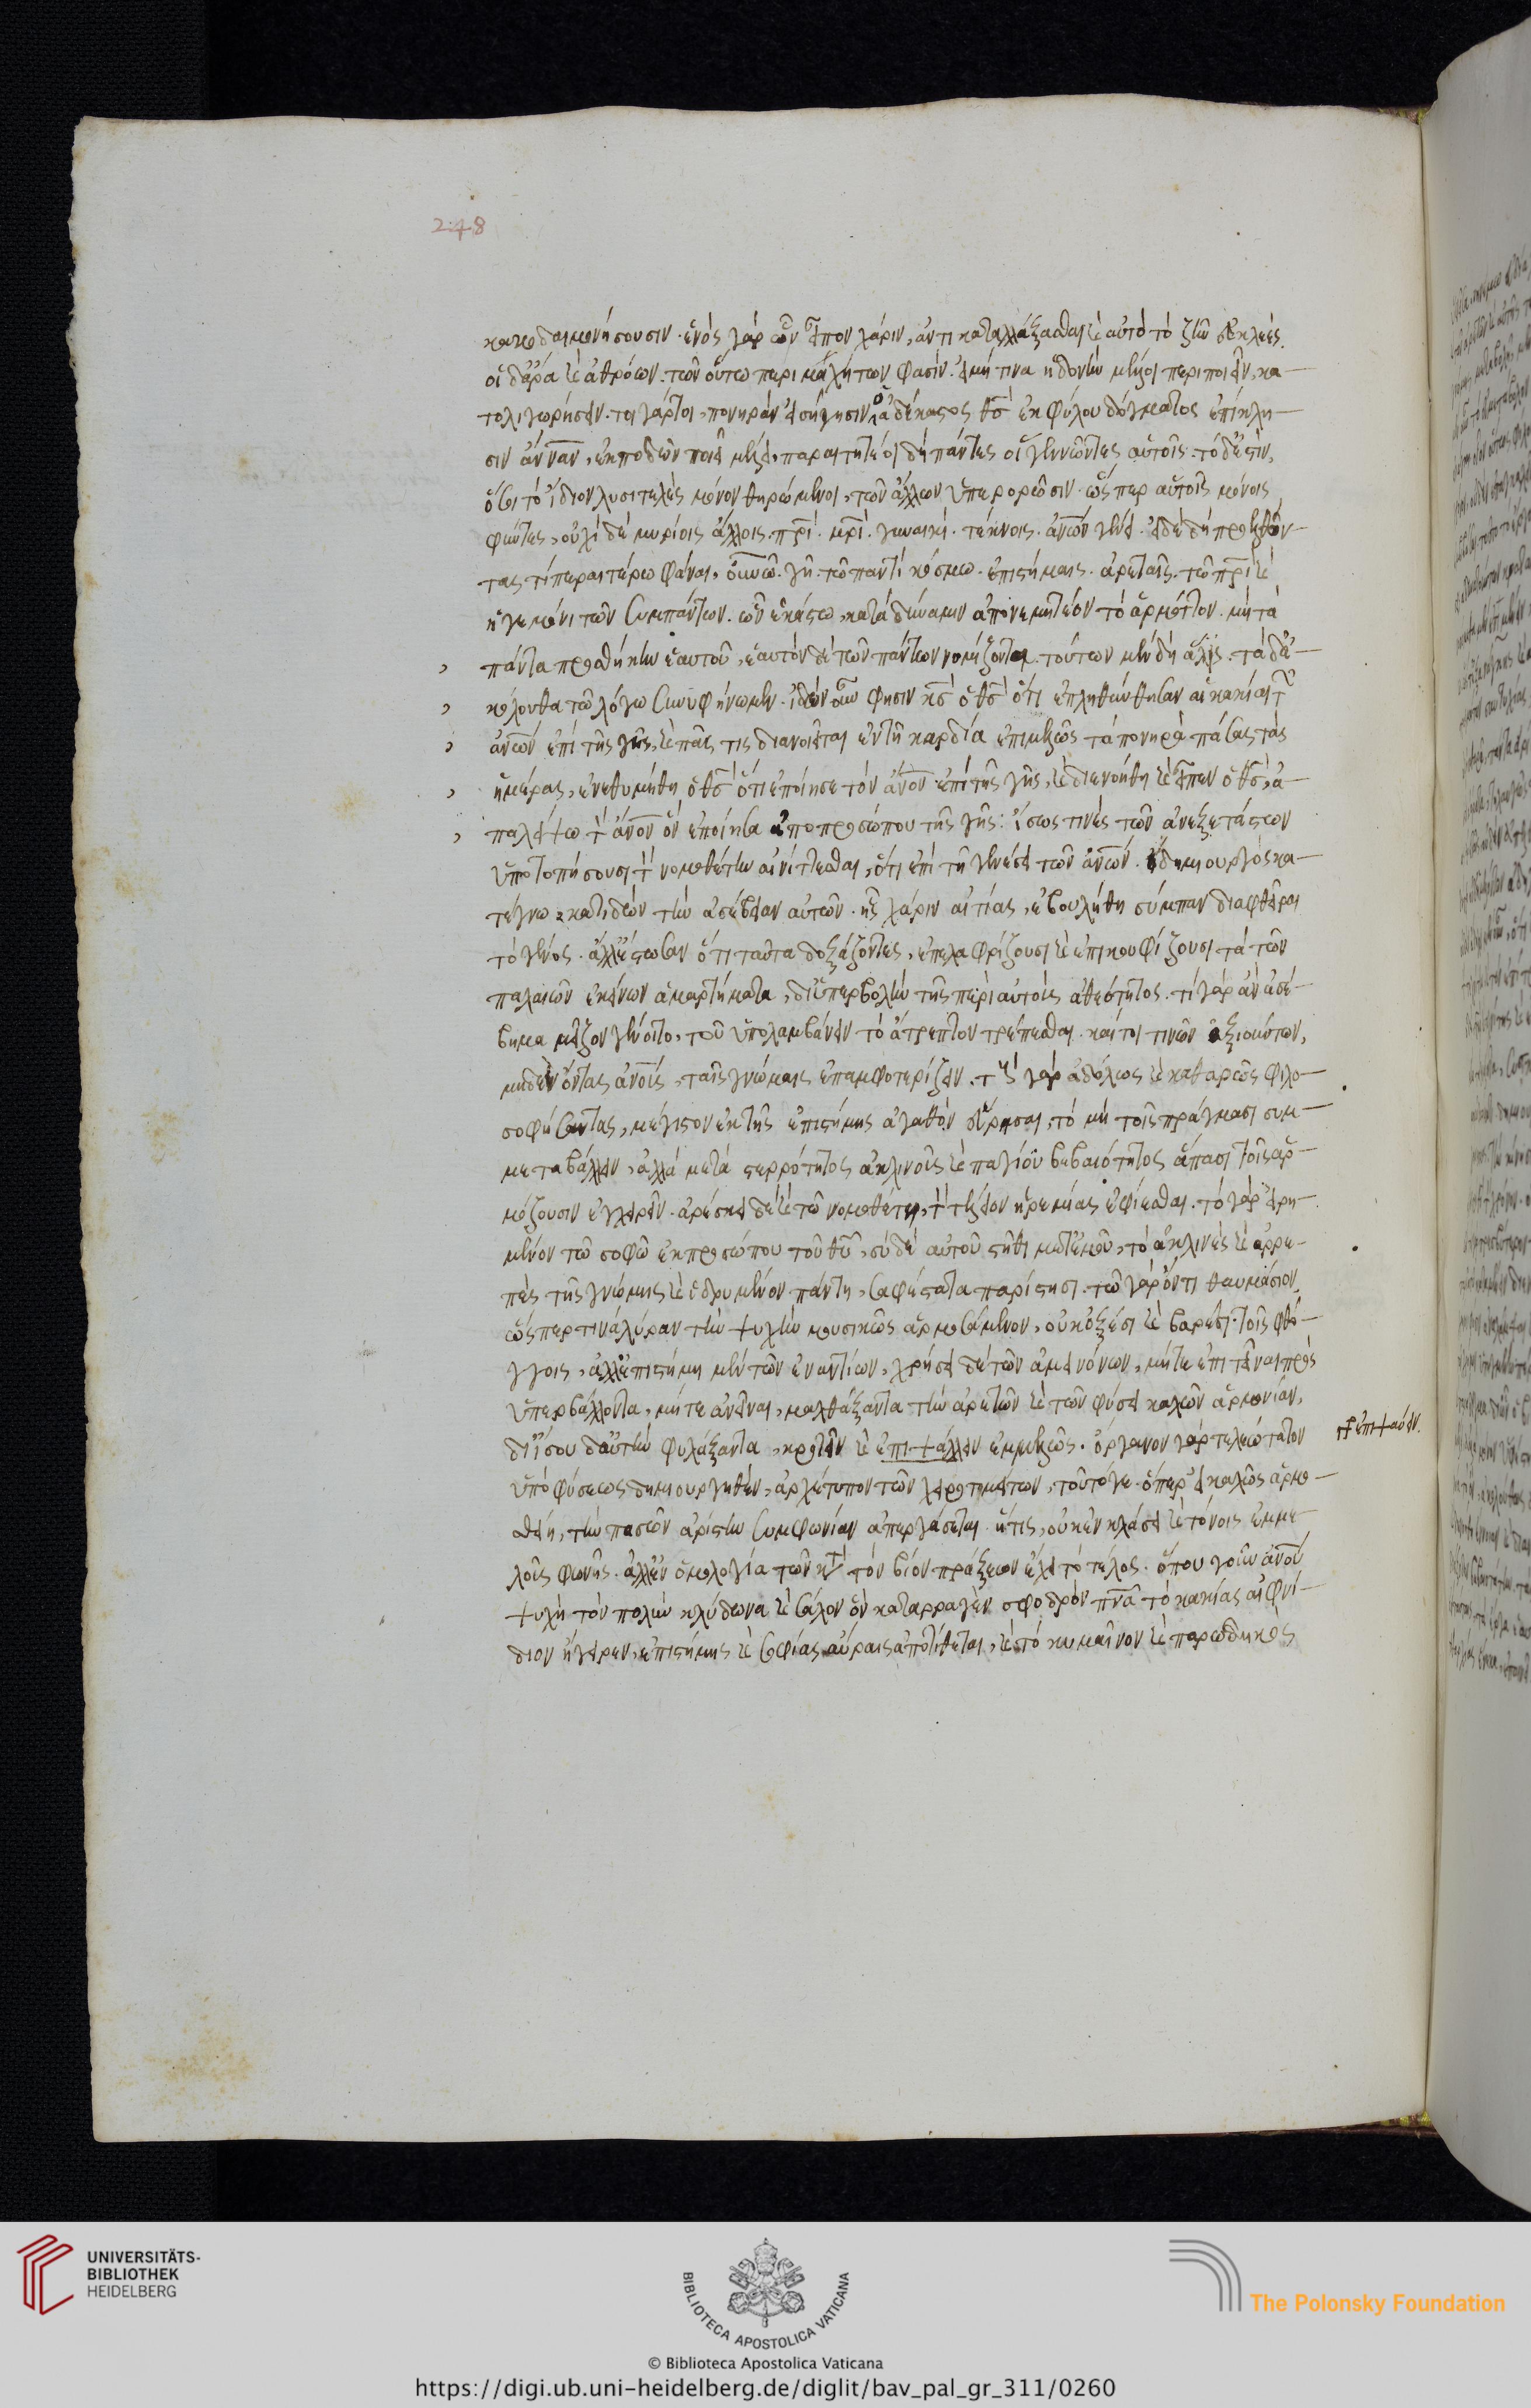 248
κακοδαιμονήσουσιν. ἑνὸς γὰρ ὧν εἶπον χάριν, ἀντικαταλλάξασθαι καὶ αὐτὸ τὸ ζῆν εὐκλεές.
οἱ δ' ἄρα καὶ ἀθρόων. τῶν οὕτω περιμαχήτων φασίν. εἰ μή τινα ἡδονὴν μέλλοι περιποιεῖν, κα-
τολιγωρήσειν. τοιγάρτοι, πονηρὰν εἰσήγησιν ὁ ἀδέκαστος θς̅ ἐκφύλου δόγματος ἐπίκλη-
σιν ἀννὰν, ἐκποδὼν ποιεῖ μέλλει, παραιτητέοι δὴ πάντες οἱ γεννῶντες αὑτοῖς. τὸ δ' ἐστὶν,
ὅσοι τὸ ἴδιον λυσιτελὲς μόνον θηρώμενοι, τῶν ἄλλων ὑπερορῶσιν. ὥσπερ αὑτοῖς μόνοις
φύντες, οὐχὶ δὲ μυρίοις ἄλλοις. πρι̅. μρι̅. γυναικί. τέκνοις. ἀνω̅ν γένει. εἰ δὲ δὴ προελθόν-
τας τί περαιτέρω φάναι, οὐνω̅. γῇ. τῷ παντὶ κόσμῳ. ἐπιστήμαις. ἀρεταῖς. τῷ πρι̅ καὶ
ἡγεμόνι τῶν συμπάντων. ὧν ἑκάστῳ, κατὰ δύναμιν ἀπονεμητέον τὸ ἁρμόττον. μὴ τὰ
πάντα προσθήκην ἑαυτοῦ, ἑαυτὸν δὲ τῶν πάντων νομίζοντα. τούτων μὲν δὴ ἅλις. τὰ δ' ἀ-
κόλουθα τῷ λόγῳ συνυφήνωμεν. ἰδὼν οὖν φησιν κς̅ ὁ θς̅ ὅτι ἐπληθύνθησαν αἱ κακίαι τῶν
ἀνω̅ν ἐπὶ τῆς γῆς, καὶ πᾶς τις διανοεῖται ἐν τῇ καρδίᾳ ἐπιμελῶς τὰ πονηρὰ πάσας τὰς
ἡμέρας, ἐνεθυμήθη ὁ θς̅ ὅτι ἐποίησε τὸν ἀνο̅ν ἐπὶ τῆς γῆς, καὶ διενοήθη καὶ εἶπεν ὁ θς̅, ἀ-
παλείψω τὸν ἀνο̅ν ὃν ἐποίησα ἀπὸ προσώπου τῆς γῆς: ἴσως τινὲς τῶν ἀνεξετάστων
ὑποτοπήσουσι τὸν νομοθέτην αἰνίττεσθαι, ὅτι ἐπὶ τῇ γενέσει τῶν ἀνω̅ν. ὁ δημιουργὸς κα-
τέγνω κατιδὼν τὴν ἀσέβειαν αὐτῶν. ἧς χάριν αἰτίας, ἐβουλήθη σύμπαν διαφθεῖραι
τὸ γένος. ἀλλ' ἔστωσαν ὅτι ταῦτα δοξάζοντες, ἐπελαφρίζουσι καὶ ἐπικουφίζουσι τὰ τῶν
παλαιῶν ἐκείνων ἁμαρτήματα, δι' ὑπερβολὴν τῆς περὶ αὐτοὺς ἀθεότητος. τί γὰρ ἂν ἀσέ-
βημα μεῖζον γένοιτο, τοῦ ὑπολαμβάνειν τὸ ἄτρεπτον τρέπεσθαι. καίτοι τινῶν ἀξιούντων,
μηδὲν ὄντας ἀνο̅ις, ταῖς γνώμαις ἐπαμφοτερίζειν. τοῖς γὰρ ἀδόλως καὶ καθαρῶς φιλο-
σοφήσαντας, μέγιστον ἐκ τῆς ἐπιστήμης ἀγαθὸν εὕρησαι, τὸ μὴ τοῖς πράγμασι συμ-
μεταβάλλειν, ἀλλὰ μετὰ στερρότητος ἀκλινοῦς καὶ παγίου βεβαιότητος ἅπασι τοῖς ἁρ-
μόζουσιν ἐγχειρεῖν. ἀρέσκει δὲ καὶ τῷ νομοθέτῃ, τὸν τέλειον ἠρεμίας ἐφίεσθαι. τὸ γὰρ εἰρη-
μένον τῷ σοφῷ ἐκ προσώπου τοῦ θυ̅, σὺ δὲ αὐτοῦ στῆθι μετ' ἐμοῦ, τὸ ἀκλινὲς καὶ ἀρρε-
πὲς τῆς γνώμης καὶ ἱδρυμένον πάντη, σαφέστατα παρίστησι. τῷ γὰρ ὄντι θαυμάσιον,
ὥσπερ τινὰ λύραν τὴν ψυχὴν μουσικῶς ἁρμοσάμενον, οὐκ ὀξέσι καὶ βαρέσι τοῖς φθό-
γγοις, ἀλλ' ἐπιστήμῃ μὲν τῶν ἐναντίων, χρήσει δὲ τῶν ἀμεινόνων, μήτε ἐπιτεῖναι πρὸς
ὑπερβάλλοντα, μήτε ἀνεῖναι, μαλθάξαντα τὴν ἀρετῶν καὶ τῶν φύσει καλῶν ἁρμονίαν,
δι' ἴσου δ' αὐτὴν φυλάξαντα, κροτεῖν καὶ ἐπιψάλλειν ἐμμελῶς. ὄργανον γὰρ τελεώτατον
γρ ἐπιψαύειν.
ὑπὸ φύσεως δημιουργηθὲν, ἀρχέτυπον τῶν χειροτμήτων, τοῦτό γε. ὅπερ εἰ καλῶς ἁρμο-
σθείη, τὴν πασῶν ἀρίστην συμφωνίαν ἀπεργάσεται. ἥτις, οὐκ ἐν κλάσει καὶ τόνοις ἐμμε-
λοῦς φωνῆς. ἀλλ' ἐν ὁμολογίᾳ τῶν κατὰ τὸν βίον πράξεων ἔχει τὸ τέλος. ὅπου γοῦν ἀνο̅υ
ψυχὴ τὸν πολὺν κλύδωνα καὶ σάλον ὃν καταρραγὲν σφοδρὸν πνα̅ τὸ κακίας αἰφνί-
διον ἤγειρεν, ἐπιστήμης καὶ σοφίας αὔραις ἀποτίθεται, καὶ τὸ κυμαῖνον καὶ παρῳδηκὸς
UNIVERSITÄTS-
BIBLIOTHEK
HEIDELBERG
BIBLIOTECA APOSTOLICA VATICANA
The Polonsky Foundation
© Biblioteca Apostolica Vaticana
https://digi.ub.uni-heidelberg.de/diglit/bav_pal_gr_311/0260